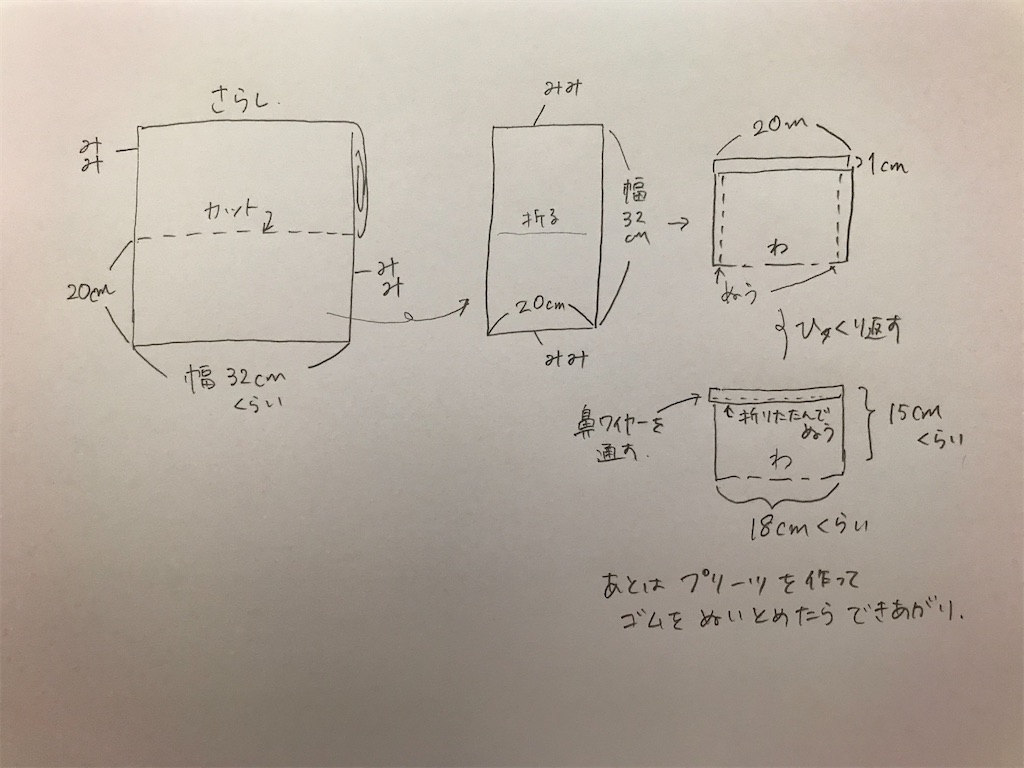 さらし.
みみ
カット
20cm
みみ
幅 32cm
くらい
みみ
折る
幅
32
cm
20cm
みみ
20m
1cm
わ
ぬう
ひっくり返す
鼻ワイヤーを
通す.
折りたたんで
ぬう
わ
15cm
くらい
18cmくらい
あとは プリーツを作って
ゴムを ぬいとめたら できあがり.